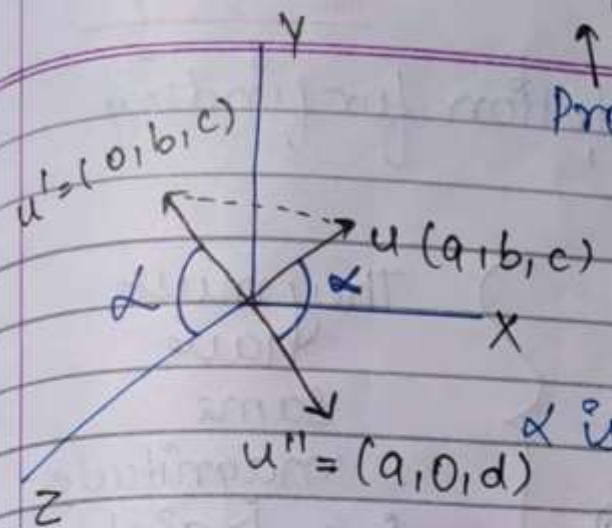 Y
u' = (0, b, c)
u (a, b, c)
α
α
X
u'' = (a, 0, d)
α
Z